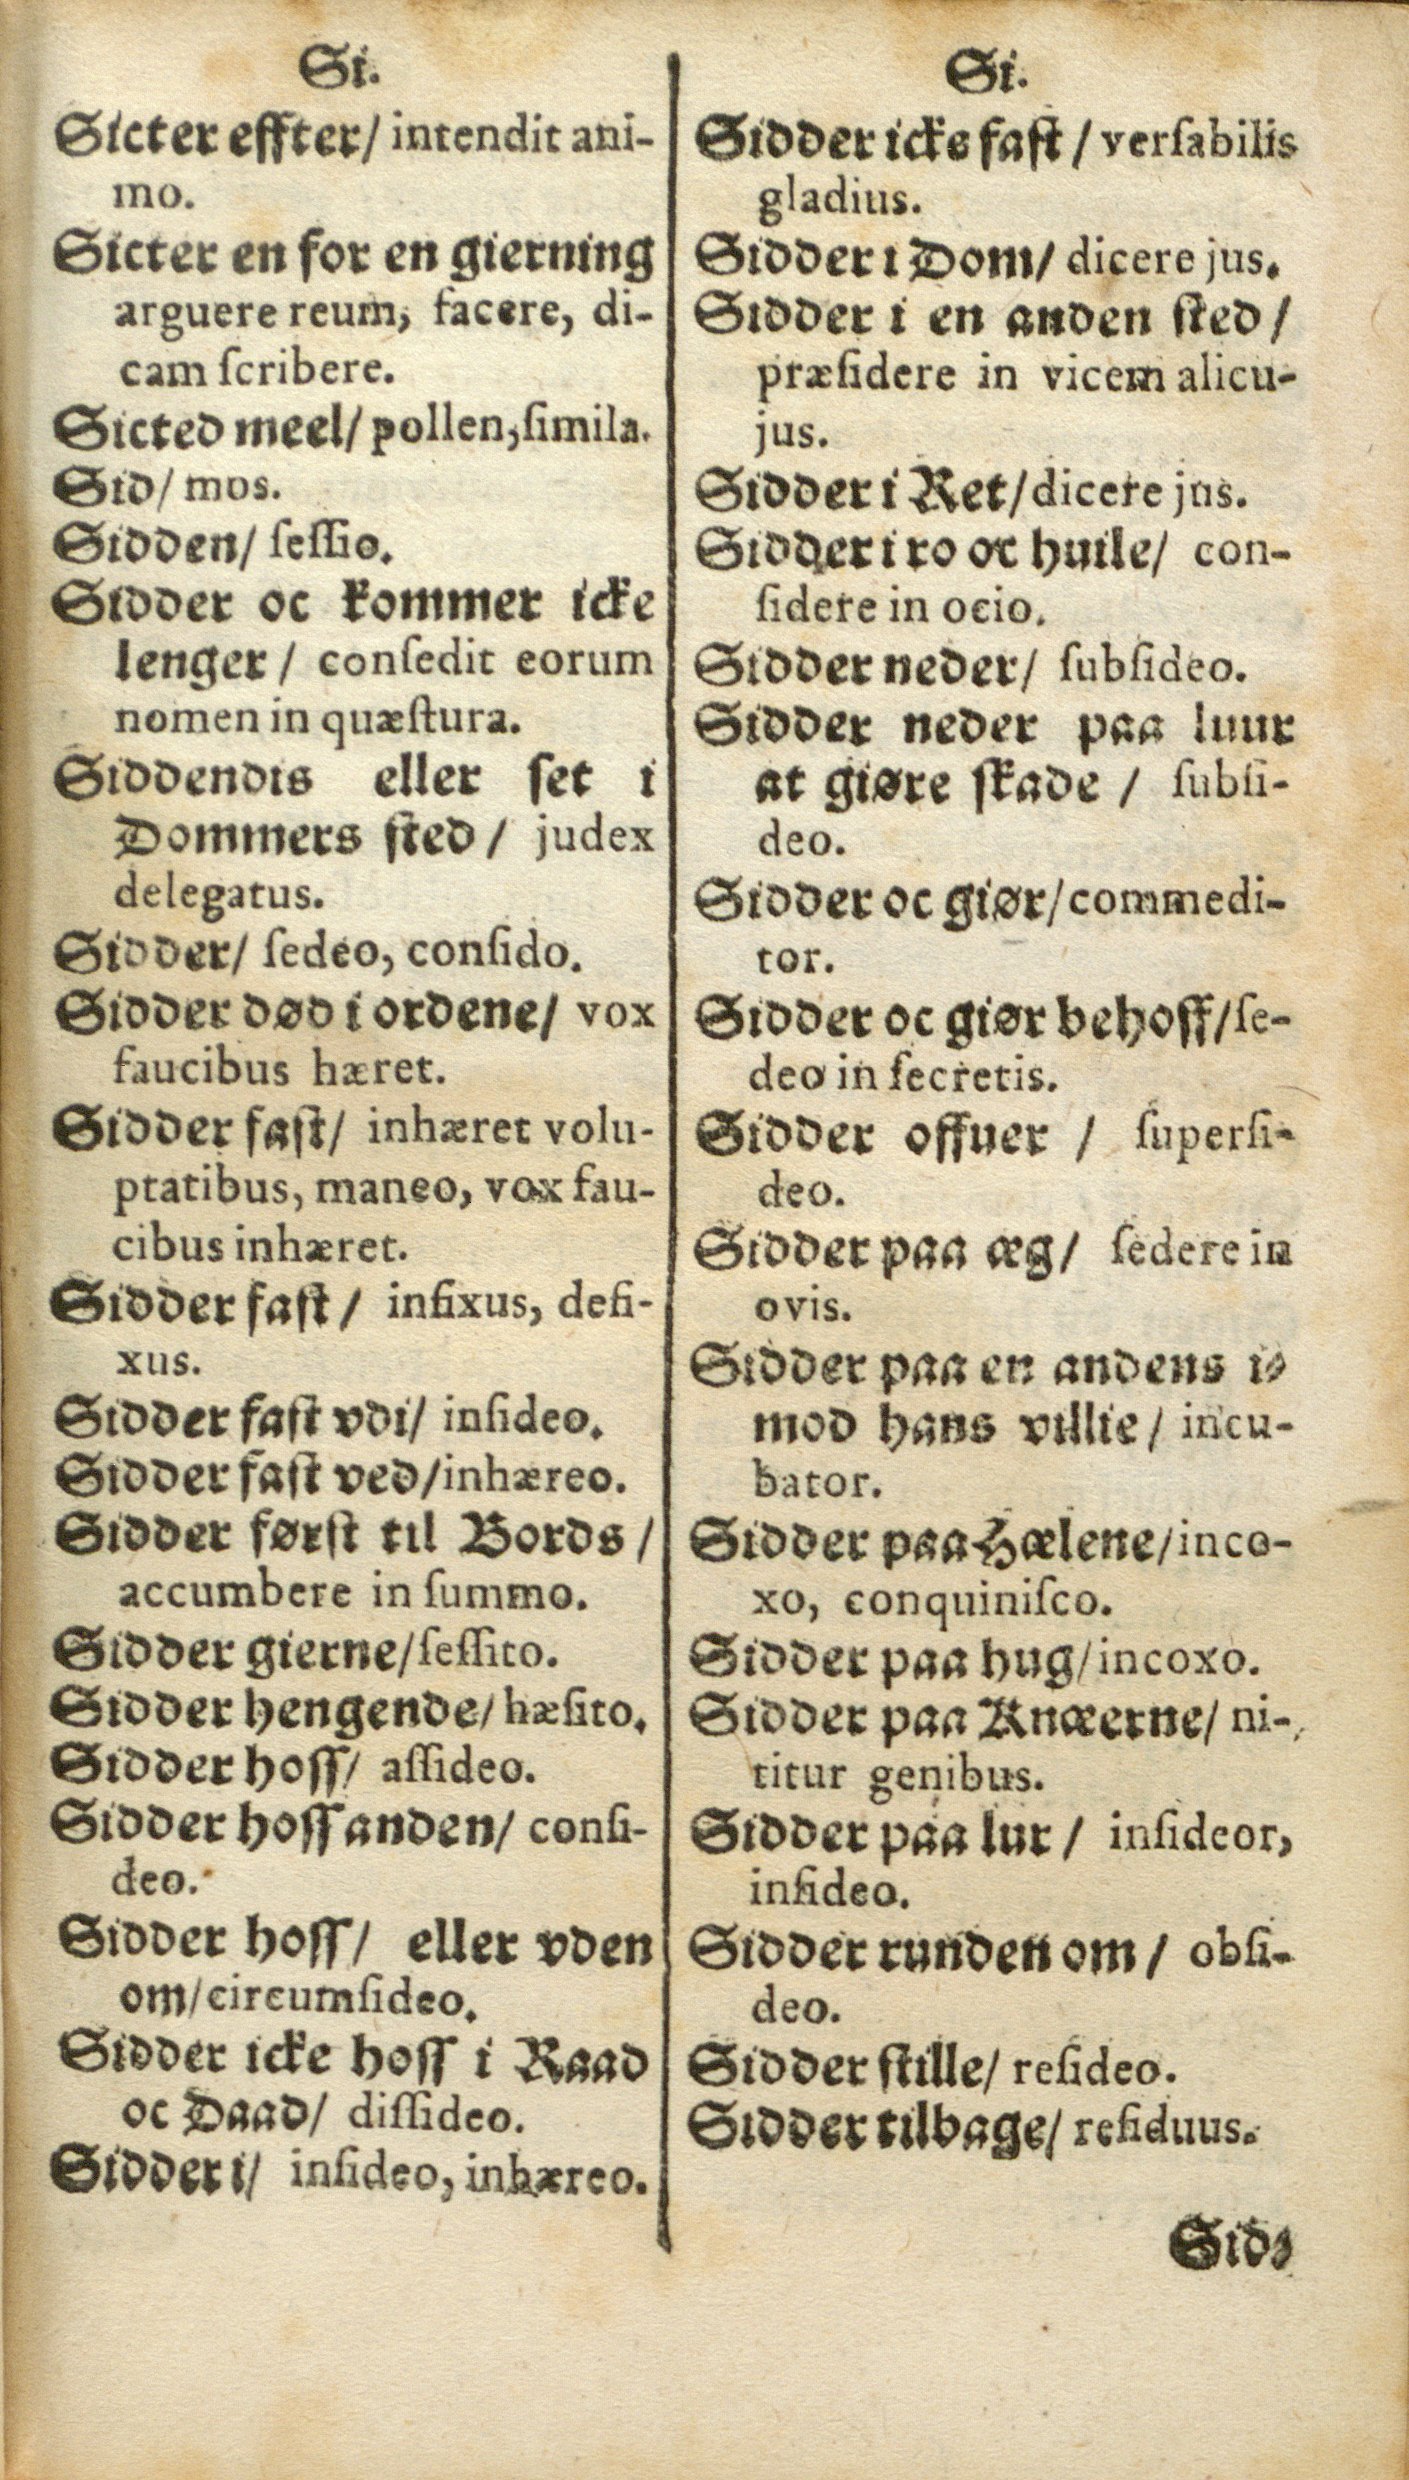 Si.
Sicter effter/ intendit ani-
mo.
Sicter en for en gierning
arguere reum, facere, di-
cam ſcribere.
Sicted meel/ pollen, ſimila.
Sid/ mos.
Sidden/ ſeſſio.
Sidder oc kommer icke
lenger/ conſedit eorum
nomen in quæſtura.
Siddendis eller ſet i
Dommers ſted/ judex
delegatus.
Sidder/ ſedeo, conſido.
Sidder død i ordene/ vox
faucibus hæret.
Sidder faſt/ inhæret volu-
ptatibus, maneo, vox fau-
cibus inhæret.
Sidder faſt/ infixus, defi-
xus.
Sidder faſt vdi/ inſideo.
Sidder faſt ved/ inhæreo.
Sidder førſt til Bords/
accumbere in ſummo.
Sidder gierne/ ſeſſito.
Sidder hengende/ hæſito.
Sidder hoſſ/ aſſideo.
Sidder hoſſ anden/ conſi-
deo.
Sidder hoſſ/ eller vden
om/ circumſideo.
Sidder icke hoſſ i Raad
oc Daad/ diſſideo.
Sidder i/ inſideo, inhæreo.
Si.
Sidder icke faſt/ verſabilis
gladius.
Sidder i Dom/ dicere jus.
Sidder i en anden ſted/
præſidere in vicem alicu-
jus.
Sidder i Ret/ dicere jus.
Sidder i ro oc huile/ con-
ſidere in otio.
Sidder neder/ ſubſideo.
Sidder neder paa luur
at giøre ſkade/ ſubſi-
deo.
Sidder oc giør/ commedi-
tor.
Sidder oc giør behoff/ ſe-
deo in ſecretis.
Sidder offuer/ ſuperſi-
deo.
Sidder paa æg/ ſedere in
ovis.
Sidder paa en andens i-
mod hans villie/ incu-
bator.
Sidder paa Hælene/ inco-
xo, conquiniſco.
Sidder paa hug/ incoxo.
Sidder paa Knæerne/ ni-
titur genibus.
Sidder paa lur/ inſideor,
inſideo.
Sidder runden om/ obſi-
deo.
Sidder ſtille/ reſideo.
Sidder tilbage/ reſiduus.
Sid-